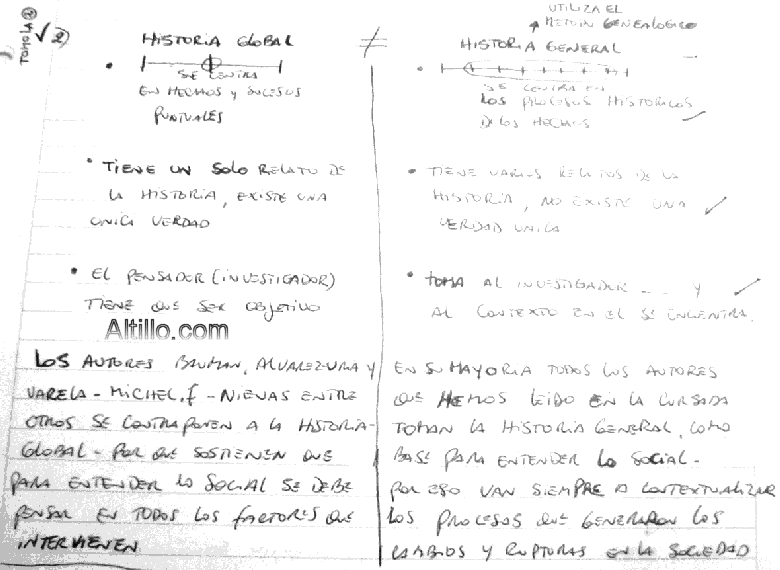 TOMO LA ②
2)
HISTORIA GLOBAL
SE CENTRA
EN HECHOS Y SUCESOS
PUNTUALES
• TIENE UN SOLO RELATO DE
LA HISTORIA, EXISTE UNA
UNICA VERDAD
• EL PENSADOR (INVESTIGADOR)
TIENE QUE SER OBJETIVO
Altillo.com
LOS AUTORES BAUMAN, ALVAREZ-URIA Y
VARELA - MICHEL.f - NIEVAS ENTRE
OTROS SE CONTRAPONEN A LA HISTORIA
GLOBAL - POR QUE SOSTIENEN QUE
PARA ENTENDER LO SOCIAL SE DEBE
PENSAR EN TODOS LOS FACTORES QUE
INTERVIENEN
≠
UTILIZA EL
METODO GENEALOGICO
HISTORIA GENERAL
SE CENTRA EN
LOS PROCESOS HISTORICOS
DE LOS HECHOS
• TIENE VARIOS RELATOS DE LA
HISTORIA, NO EXISTE UNA
VERDAD UNICA
• TOMA AL INVESTIGADOR _ _ Y
AL CONTEXTO EN EL SE ENCUENTRA.
EN SU MAYORIA TODOS LOS AUTORES
QUE HEMOS LEIDO EN LA CURSADA
TOMAN LA HISTORIA GENERAL, COMO
BASE PARA ENTENDER LO SOCIAL -
POR ESO VAN SIEMPRE A CONTEXTUALIZAR
LOS PROCESOS QUE GENERARON LOS
CAMBIOS Y RUPTURAS EN LA SOCIEDAD